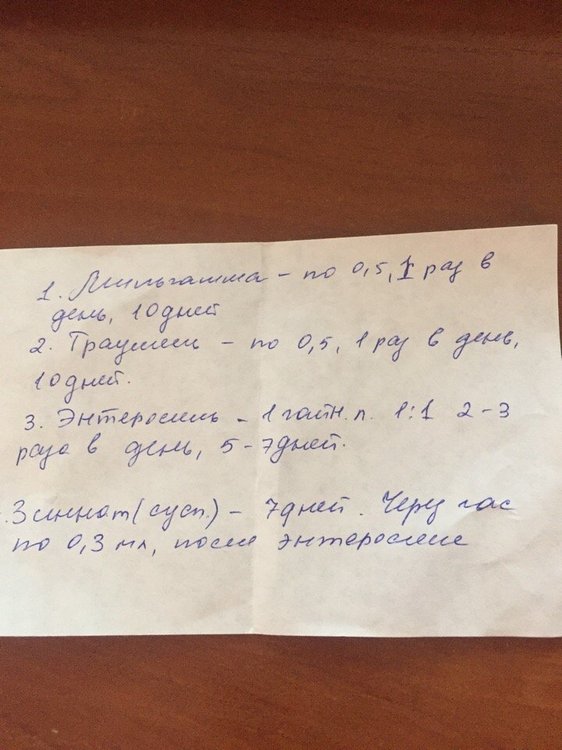 1. Мильгамма - по 0,5, 1 раз в
день, 10 дней
2. Траумель - по 0,5, 1 раз в день,
10 дней.
3. Энтеросгель - 1 чайн. л. 1:1 2-3
раза в день, 5-7 дней.
. Зиннат (сусп.) - 7 дней. Через час
по 0,3 мл, после энтеросгеле